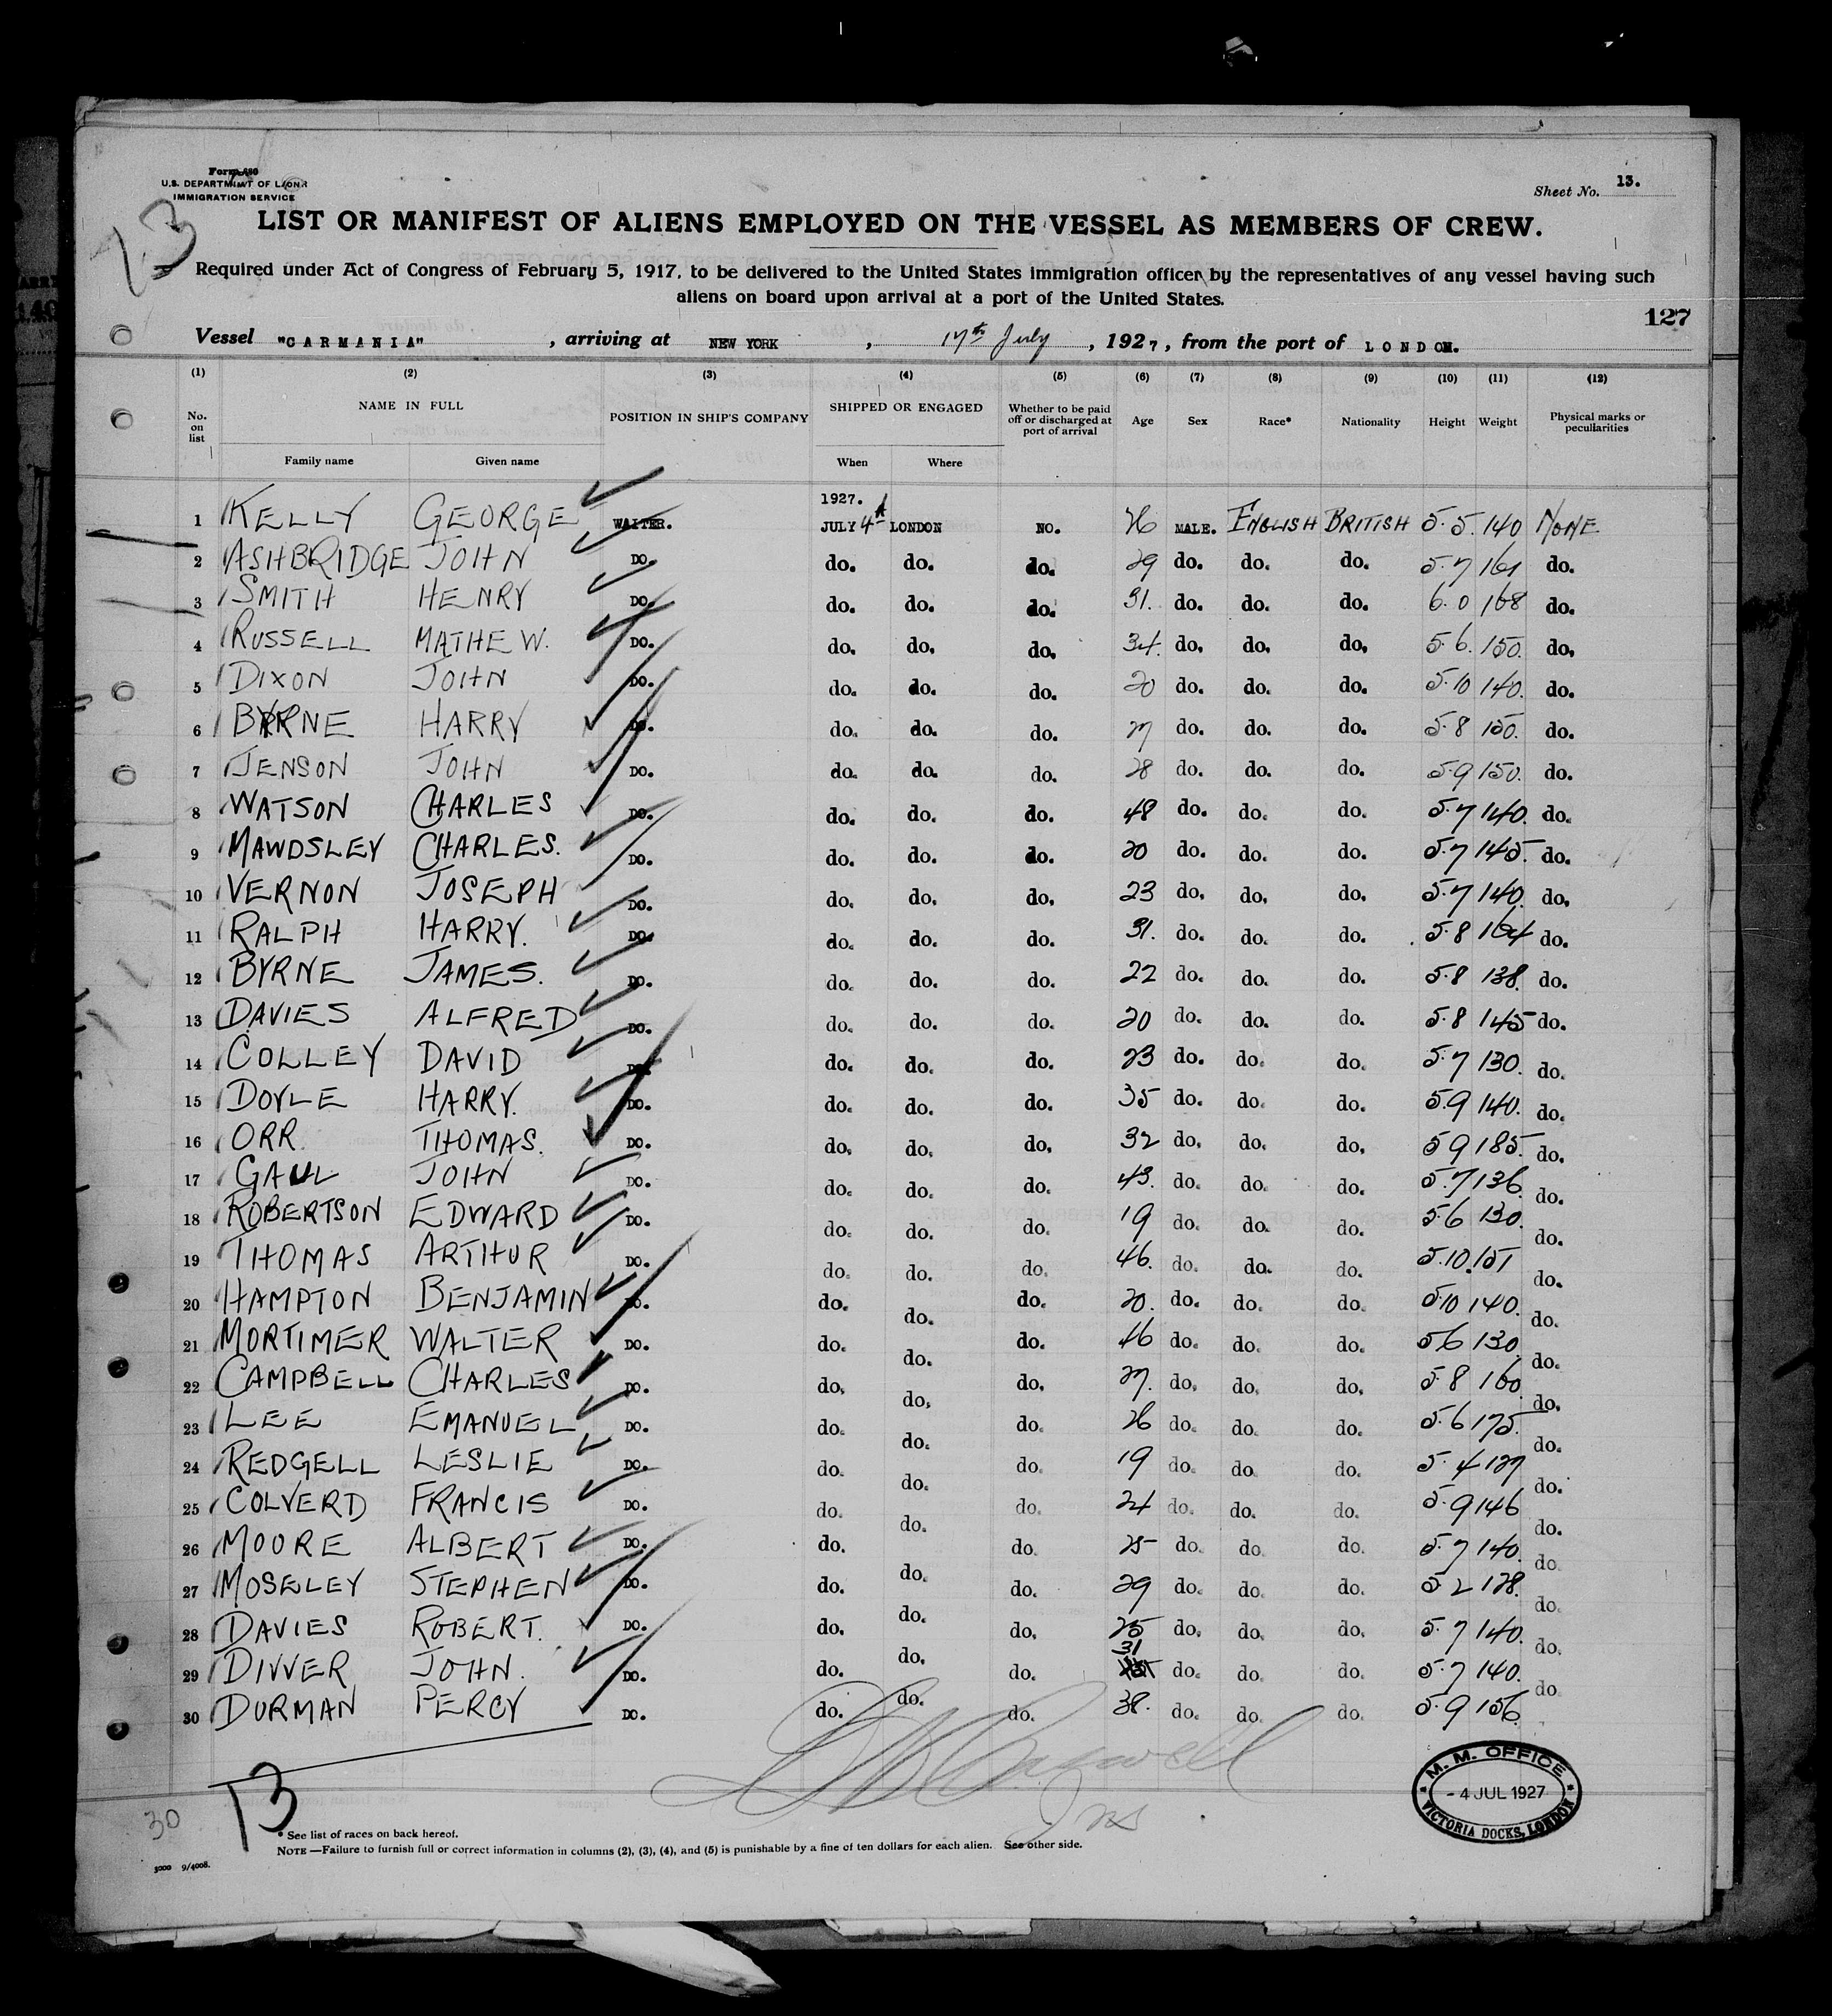 Form 680
U.S. DEPARTMENT OF LABOR
IMMIGRATION SERVICE
Sheet No. 13.
13
LIST OR MANIFEST OF ALIENS EMPLOYED ON THE VESSEL AS MEMBERS OF CREW.
Required under Act of Congress of February 5, 1917, to be delivered to the United States immigration officer by the representatives of any vessel having such
aliens on board upon arrival at a port of the United States.
127
Vessel "CARMANIA", arriving at NEW YORK, 17th July, 1927, from the port of LONDON.
(1) (2) (3) (4) (5) (6) (7) (8) (9) (10) (11) (12)
No. on list NAME IN FULL POSITION IN SHIP'S COMPANY SHIPPED OR ENGAGED Whether to be paid off or discharged at port of arrival Age Sex Race* Nationality Height Weight Physical marks or peculiarities
Family name Given name When Where
1927.
1 KELLY GEORGE WAITER. JULY 4th LONDON NO. 26 MALE. ENGLISH BRITISH 5.5. 140 NONE
2 ASHBRIDGE JOHN DO. do. do. do. 29 do. do. do. 5.7 161 do.
3 SMITH HENRY DO. do. do. do. 31. do. do. do. 6.0 168 do.
4 RUSSELL MATHEW. DO. do. do. do. 34. do. do. do. 5.6. 150. do.
5 DIXON JOHN DO. do. do. do. 20 do. do. do. 5.10 140. do.
6 BYRNE HARRY DO. do. do. do. 27 do. do. do. 5.8 150. do.
7 JENSON JOHN DO. do. do. do. 28 do. do. do. 5.9 150. do.
8 WATSON CHARLES DO. do. do. do. 48 do. do. do. 5.7 140. do.
9 MAWDSLEY CHARLES. DO. do. do. do. 20 do. do. do. 5.7 145. do.
10 VERNON JOSEPH DO. do. do. do. 23 do. do. do. 5.7 140. do.
11 RALPH HARRY. DO. do. do. do. 31. do. do. do. 5.8 164 do.
12 BYRNE JAMES. DO. do. do. do. 22 do. do. do. 5.8 138. do.
13 DAVIES ALFRED DO. do. do. do. 20 do. do. do. 5.8 145 do.
14 COLLEY DAVID DO. do. do. do. 23 do. do. do. 5.7 130. do.
15 DOYLE HARRY. DO. do. do. do. 35 do. do. do. 5.9 140. do.
16 ORR. THOMAS. DO. do. do. do. 32 do. do. do. 5 9 185. do.
17 GAUL JOHN DO. do. do. do. 43. do. do. do. 5.7 136 do.
18 ROBERTSON EDWARD DO. do. do. do. 19 do. do. do. 5.6 130. do.
19 THOMAS ARTHUR DO. do. do. do. 46. do. do. do. 5.10. 151 do.
20 HAMPTON BENJAMIN DO. do. do. do. 20. do. do. do. 5.10 140. do.
21 MORTIMER WALTER DO. do. do. do. 46 do. do. do. 5.6 130 do.
22 CAMPBELL CHARLES DO. do. do. do. 27. do. do. do. 5.8 160 do.
23 LEE EMANUEL DO. do. do. do. 26 do. do. do. 5.6 175. do.
24 REDGELL LESLIE DO. do. do. do. 19 do. do. do. 5.4 127 do.
25 COLVERD FRANCIS DO. do. do. do. 24 do. do. do. 5.9 146 do.
26 MOORE ALBERT DO. do. do. do. 25 do. do. do. 5.7 140. do.
27 MOSELEY STEPHEN DO. do. do. do. 29 do. do. do. 5.2 128. do.
28 DAVIES ROBERT. DO. do. do. do. 25 do. do. do. 5.7 140. do.
29 DIVVER JOHN. DO. do. do. do. 31 do. do. do. 5.7 140. do.
30 DURMAN PERCY DO. do. do. do. 38. do. do. do. 5.9 156.
M. M. OFFICE
- 4 JUL 1927
VICTORIA DOCKS, LONDON
30
13
* See list of races on back hereof.
NOTE —Failure to furnish full or correct information in columns (2), (3), (4), and (5) is punishable by a fine of ten dollars for each alien. See other side.
5000 9/4008.